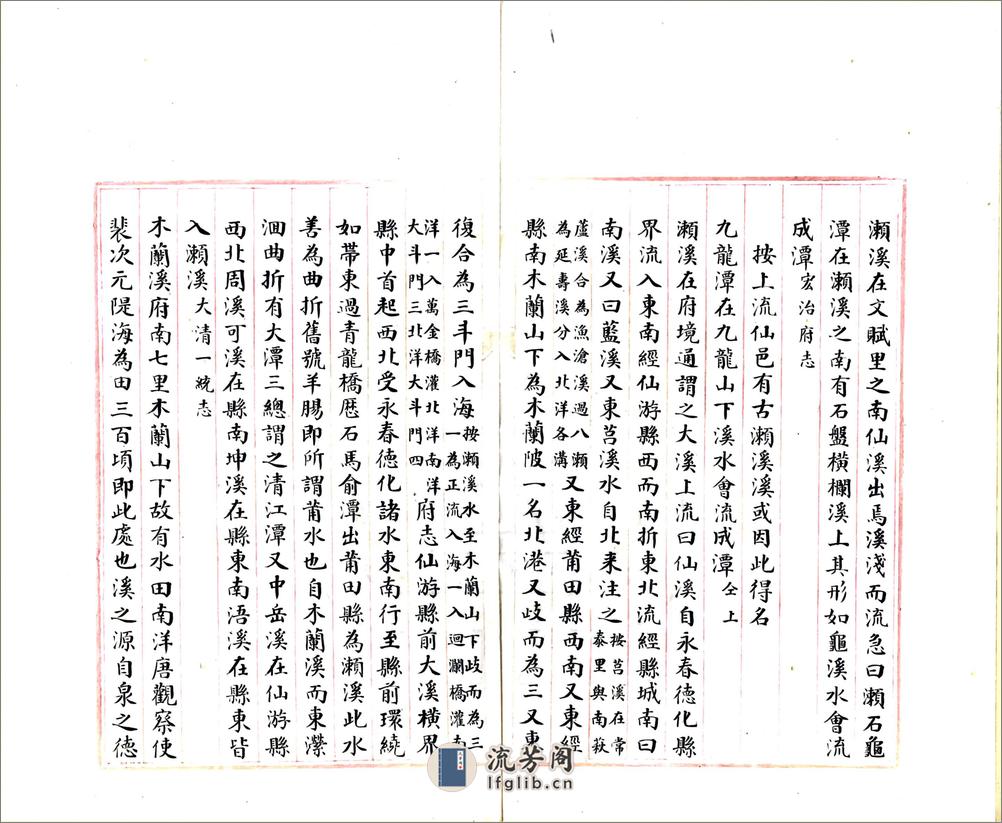 瀨溪在文賦里之南仙溪出焉溪淺而流急曰瀨石龜
潭在瀨溪之南有石盤橫欄溪上其形如龜溪水會流
成潭宏治府志
按上流仙邑有古瀨溪溪或因此得名
九龍潭在九龍山下溪水會流成潭仝上
瀨溪在府境通謂之大溪上流曰仙溪自永春德化縣
界流入東南經仙游縣西而南折東北流經縣城南曰
南溪又曰藍溪又東莒溪水自北来注之按莒溪在常泰里與南萩
蘆溪合為漁滄溪過八瀨為延壽溪分入北洋各溝又東經莆田縣西南又東經
縣南木蘭山下為木蘭陂一名北港又歧而為三又東
復合為三斗門入海按瀨溪水至木蘭山下歧而為三一為正流入海一入迴瀾橋灌南
洋一入萬金橋灌北洋南洋大斗門三北洋大斗門四府志仙游縣前大溪橫界
縣中首起西北受永春德化諸水東南行至縣前環繞
如帶東過青龍橋歷石馬俞潭出莆田縣為瀨溪此水
善為曲折舊號羊腸即所謂莆水也自木蘭溪而東瀠
洄曲折有大潭三總謂之清江潭又中岳溪在仙游縣
西北周溪可溪在縣南坤溪在縣東南浯溪在縣東皆
入瀨溪大清一統志
木蘭溪府南七里木蘭山下故有水田南洋唐觀察使
裴次元隄海為田三百頃即此處也溪之源自泉之德
流芳阁
lfglib.cn